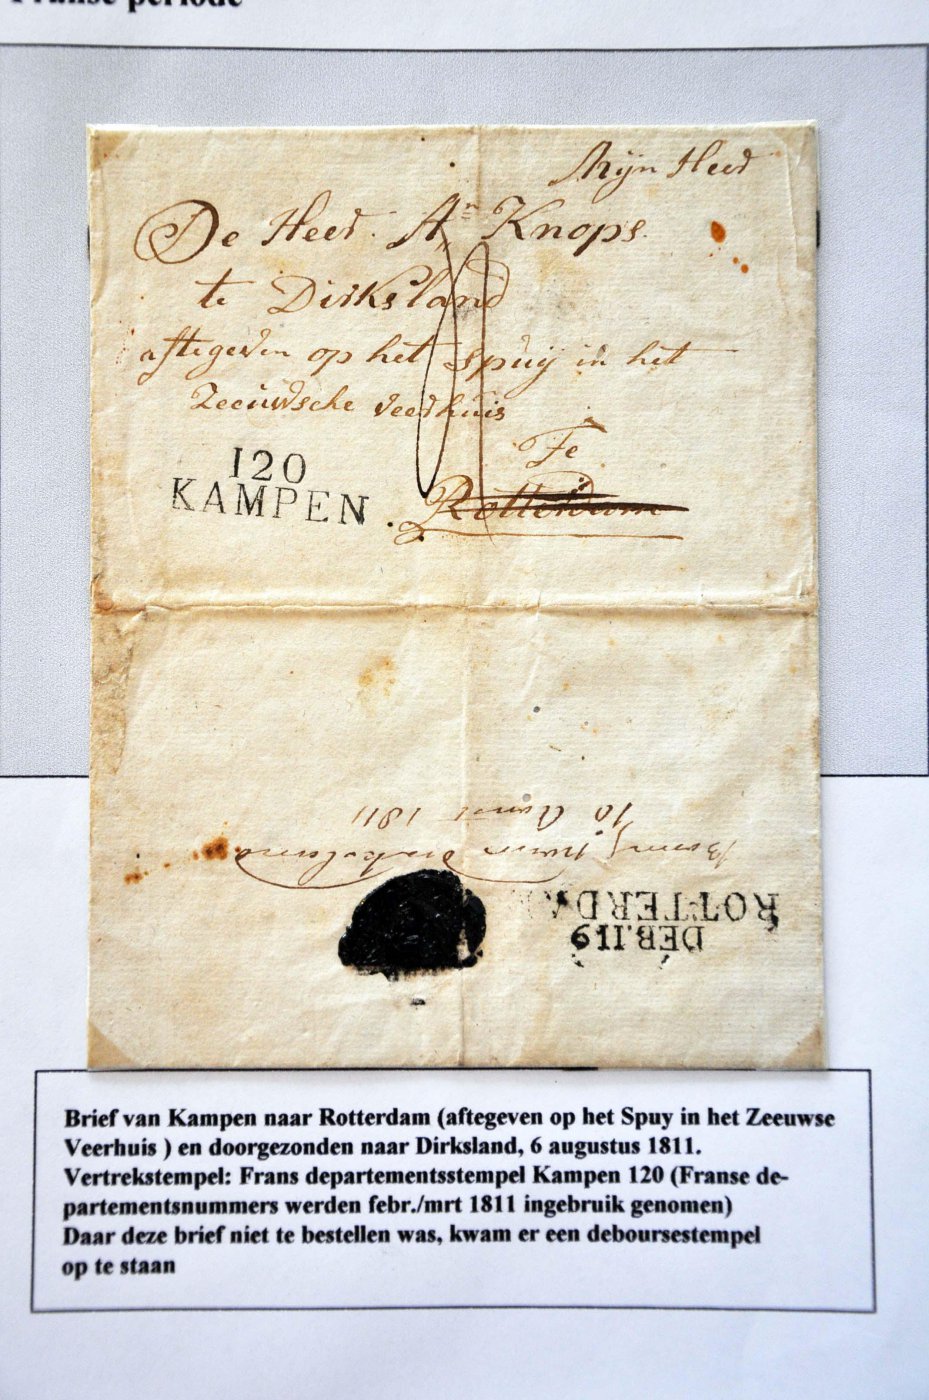 Franse periode
Mijn Heer
De Heer An Knops
te Dirksland
aftegeven op het Spuij in het
Zeeuwsche veerhuis
Te
Rotterdam
120
KAMPEN
10 1811
ROTTERDA
DEB.119
Brief van Kampen naar Rotterdam (aftegeven op het Spuy in het Zeeuwse
Veerhuis ) en doorgezonden naar Dirksland, 6 augustus 1811.
Vertrekstempel: Frans departementsstempel Kampen 120 (Franse de-
partementsnummers werden febr./mrt 1811 ingebruik genomen)
Daar deze brief niet te bestellen was, kwam er een deboursestempel
op te staan